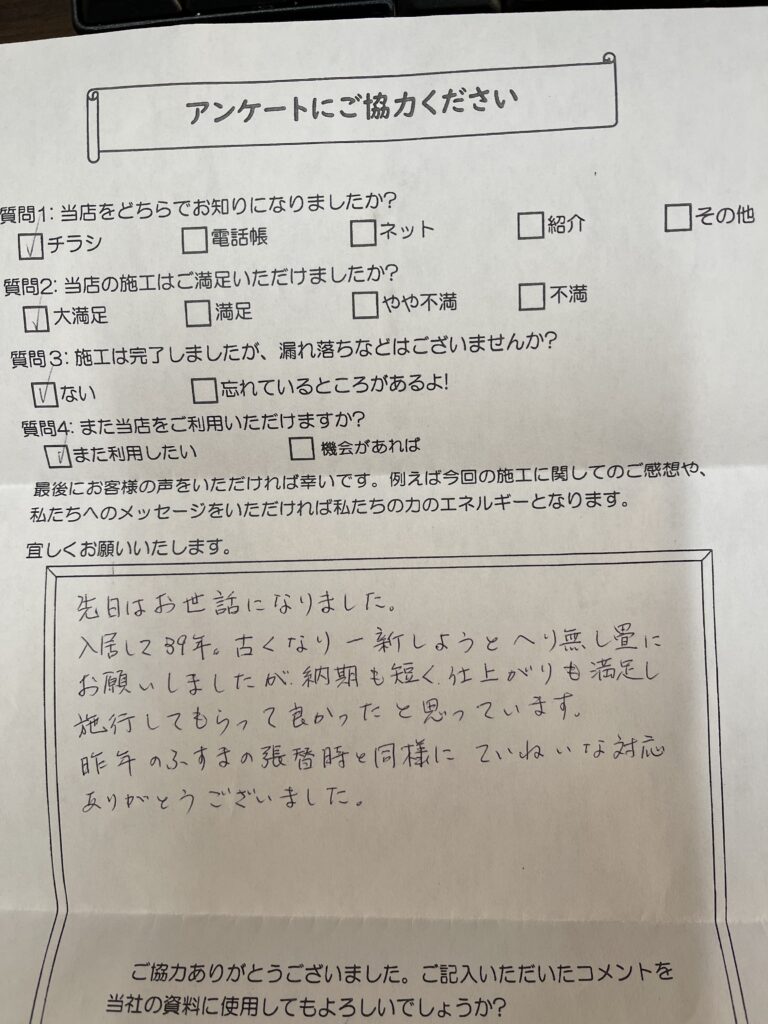 アンケートにご協力ください
質問1: 当店をどちらでお知りになりましたか?
チラシ 電話帳 ネット 紹介 その他
質問2: 当店の施工はご満足いただけましたか?
大満足 満足 やや不満 不満
質問3: 施工は完了しましたが、漏れ落ちなどはございませんか?
ない 忘れているところがあるよ!
質問4: また当店をご利用いただけますか?
また利用したい 機会があれば
最後にお客様の声をいただければ幸いです。例えば今回の施工に関してのご感想や、
私たちへのメッセージをいただければ私たちの力のエネルギーとなります。
宜しくお願いいたします。
先日はお世話になりました。
入居して39年。古くなり一新しようとヘリ無し畳に
お願いしましたが、納期も短く、仕上がりも満足し
施行してもらって良かったと思っています。
昨年のふすまの張替時と同様に ていねいな対応
ありがとうございました。
ご協力ありがとうございました。ご記入いただいたコメントを
当社の資料に使用してもよろしいでしょうか?